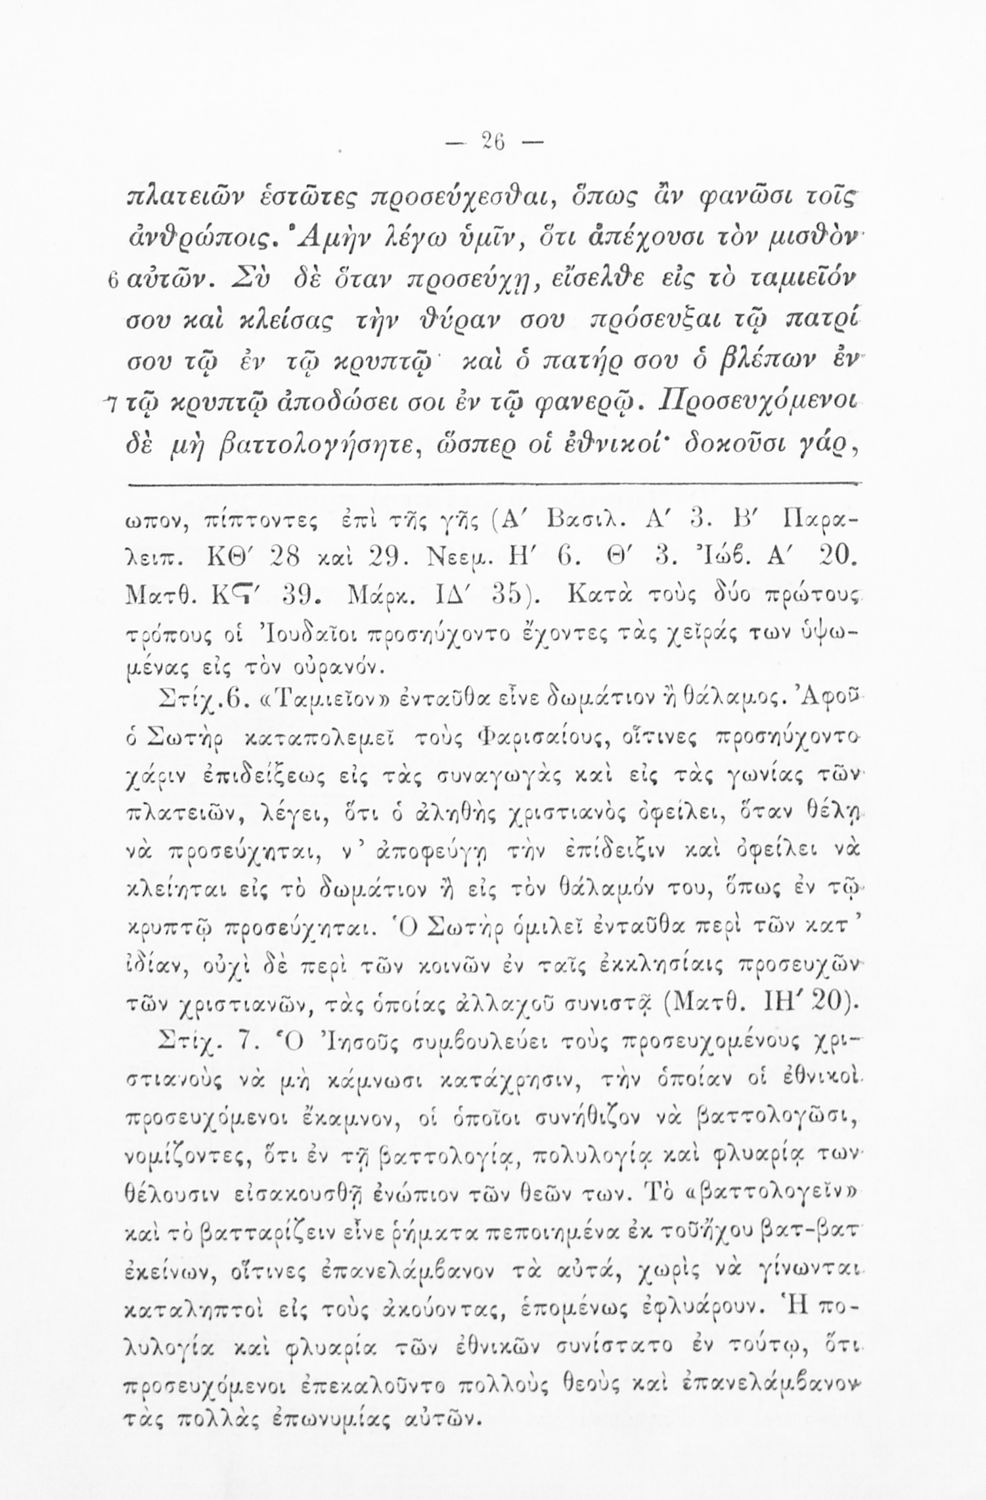 — 26 —
πλατειῶν ἑστῶτες προσεύχεσθαι, ὅπως ἂν φανῶσι τοῖς
ἀνθρώποις. Ἀμὴν λέγω ὑμῖν, ὅτι ἀπέχουσι τὸν μισθὸν
6 αὐτῶν. Σὺ δὲ ὅταν προσεύχῃ, εἴσελθε εἰς τὸ ταμιεῖόν
σου καὶ κλείσας τὴν θύραν σου πρόσευξαι τῷ πατρί
σου τῷ ἐν τῷ κρυπτῷ· καὶ ὁ πατήρ σου ὁ βλέπων ἐν
7 τῷ κρυπτῷ ἀποδώσει σοι ἐν τῷ φανερῷ. Προσευχόμενοι
δὲ μὴ βαττολογήσητε, ὥσπερ οἱ ἐθνικοί· δοκοῦσι γάρ,
ωπον, πίπτοντες ἐπὶ τῆς γῆς (Α′ Βασιλ. Α′ 3. Β′ Παρα-
λειπ. ΚΘ′ 28 καὶ 29. Νεεμ. Η′ 6. Θ′ 3. Ἰώβ. Α′ 20.
Ματθ. ΚϚ′ 39. Μάρκ. ΙΔ′ 35). Κατὰ τοὺς δύο πρώτους
τρόπους οἱ Ἰουδαῖοι προσηύχοντο ἔχοντες τὰς χεῖράς των ὑψω-
μένας εἰς τὸν οὐρανόν.
Στίχ.6. «Ταμιεῖον» ἐνταῦθα εἶνε δωμάτιον ἢ θάλαμος. Ἀφοῦ
ὁ Σωτὴρ καταπολεμεῖ τοὺς Φαρισαίους, οἵτινες προσηύχοντο
χάριν ἐπιδείξεως εἰς τὰς συναγωγὰς καὶ εἰς τὰς γωνίας τῶν
πλατειῶν, λέγει, ὅτι ὁ ἀληθὴς χριστιανὸς ὀφείλει, ὅταν θέλῃ
νὰ προσεύχηται, ν’ ἀποφεύγῃ τὴν ἐπίδειξιν καὶ ὀφείλει νὰ
κλείηται εἰς τὸ δωμάτιον ἢ εἰς τὸν θάλαμόν του, ὅπως ἐν τῷ
κρυπτῷ προσεύχηται. Ὁ Σωτὴρ ὁμιλεῖ ἐνταῦθα περὶ τῶν κατ’
ἰδίαν, οὐχὶ δὲ περὶ τῶν κοινῶν ἐν ταῖς ἐκκλησίαις προσευχῶν
τῶν χριστιανῶν, τὰς ὁποίας ἀλλαχοῦ συνιστᾷ (Ματθ. ΙΗ′ 20).
Στίχ. 7. Ὁ Ἰησοῦς συμβουλεύει τοὺς προσευχομένους χρι-
στιανοὺς νὰ μὴ κάμνωσι κατάχρησιν, τὴν ὁποίαν οἱ ἐθνικοὶ
προσευχόμενοι ἔκαμνον, οἱ ὁποῖοι συνήθιζον νὰ βαττολογῶσι,
νομίζοντες, ὅτι ἐν τῇ βαττολογίᾳ, πολυλογίᾳ καὶ φλυαρίᾳ των
θέλουσιν εἰσακουσθῇ ἐνώπιον τῶν θεῶν των. Τὸ «βαττολογεῖν»
καὶ τὸ βατταρίζειν εἶνε ῥήματα πεποιημένα ἐκ τοῦ ἤχου βατ-βατ
ἐκείνων, οἵτινες ἐπανελάμβανον τὰ αὐτά, χωρὶς νὰ γίνωνται
καταληπτοὶ εἰς τοὺς ἀκούοντας, ἑπομένως ἐφλυάρουν. Ἡ πο-
λυλογία καὶ φλυαρία τῶν ἐθνικῶν συνίστατο ἐν τούτῳ, ὅτι
προσευχόμενοι ἐπεκαλοῦντο πολλοὺς θεοὺς καὶ ἐπανελάμβανον
τὰς πολλὰς ἐπωνυμίας αὐτῶν.